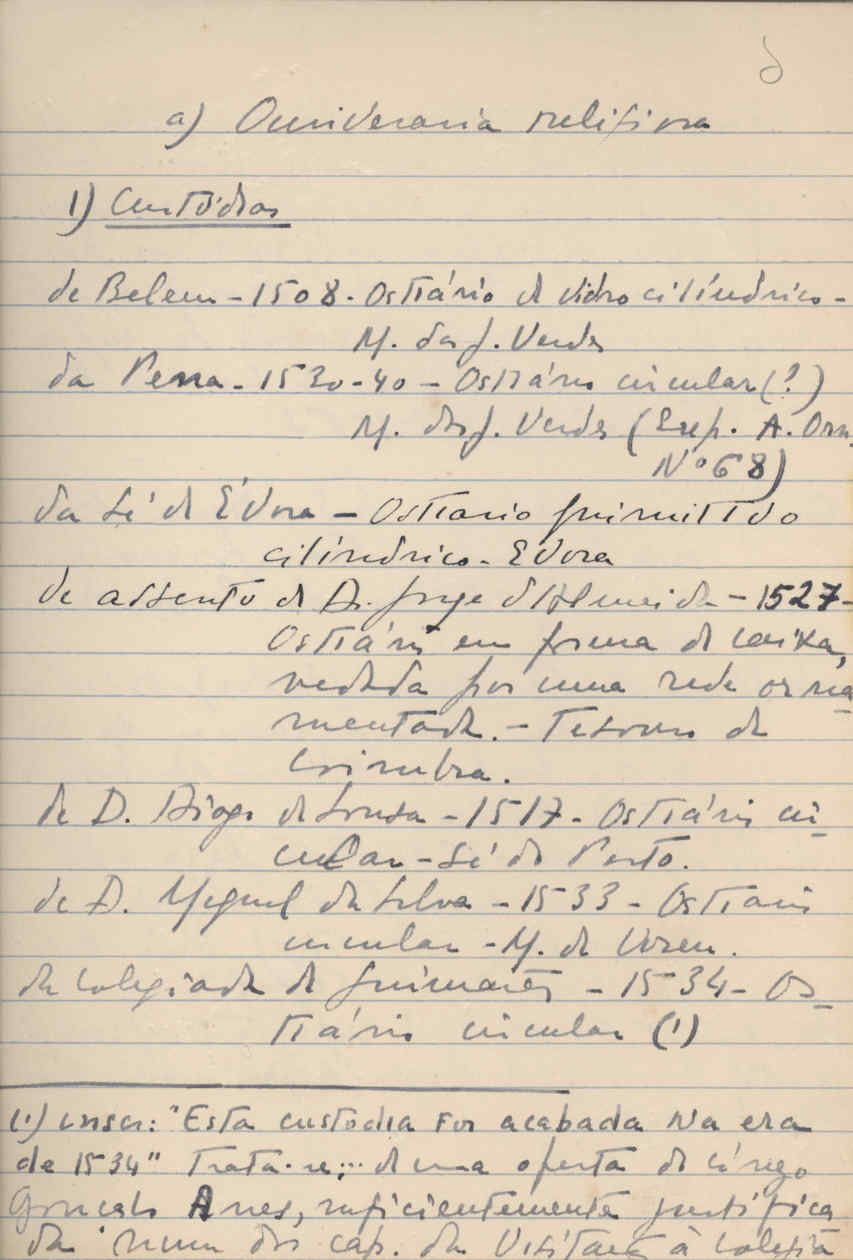 a) Ourivesaria religiosa
1) Custódias
de Belem - 1508. Ostiário de vidro cilíndrico -
M. das J. Verdes
da Pena - 1530-40 - Ostiário circular (?)
M. das J. Verdes (Exp. A. Orn.
Nº 68)
da Sé de Évora - Ostiario
cilíndrico - Evora
de assento de D. Jorge d'Almeida - 1527 -
Ostiário em forma de caixa,
vedada por uma rede orna
mentada. - Tesouro de
Coimbra.
de D. Diogo de Sousa - 1517 - Ostiário cir
cular - Sé do Porto.
de D. Miguel da Silva - 1533 - Ostiario
circular - M. de Viseu.
da Colegiada de Guimarães - 1534 - Os
tiário circular (1)
(1) inscr: "Esta custodia foi acabada na era
de 1534" Trata-se de uma oferta do cónego
Gonçalo Anes, suficientemente justifica
da num dos cap. da Visitação à Colegia